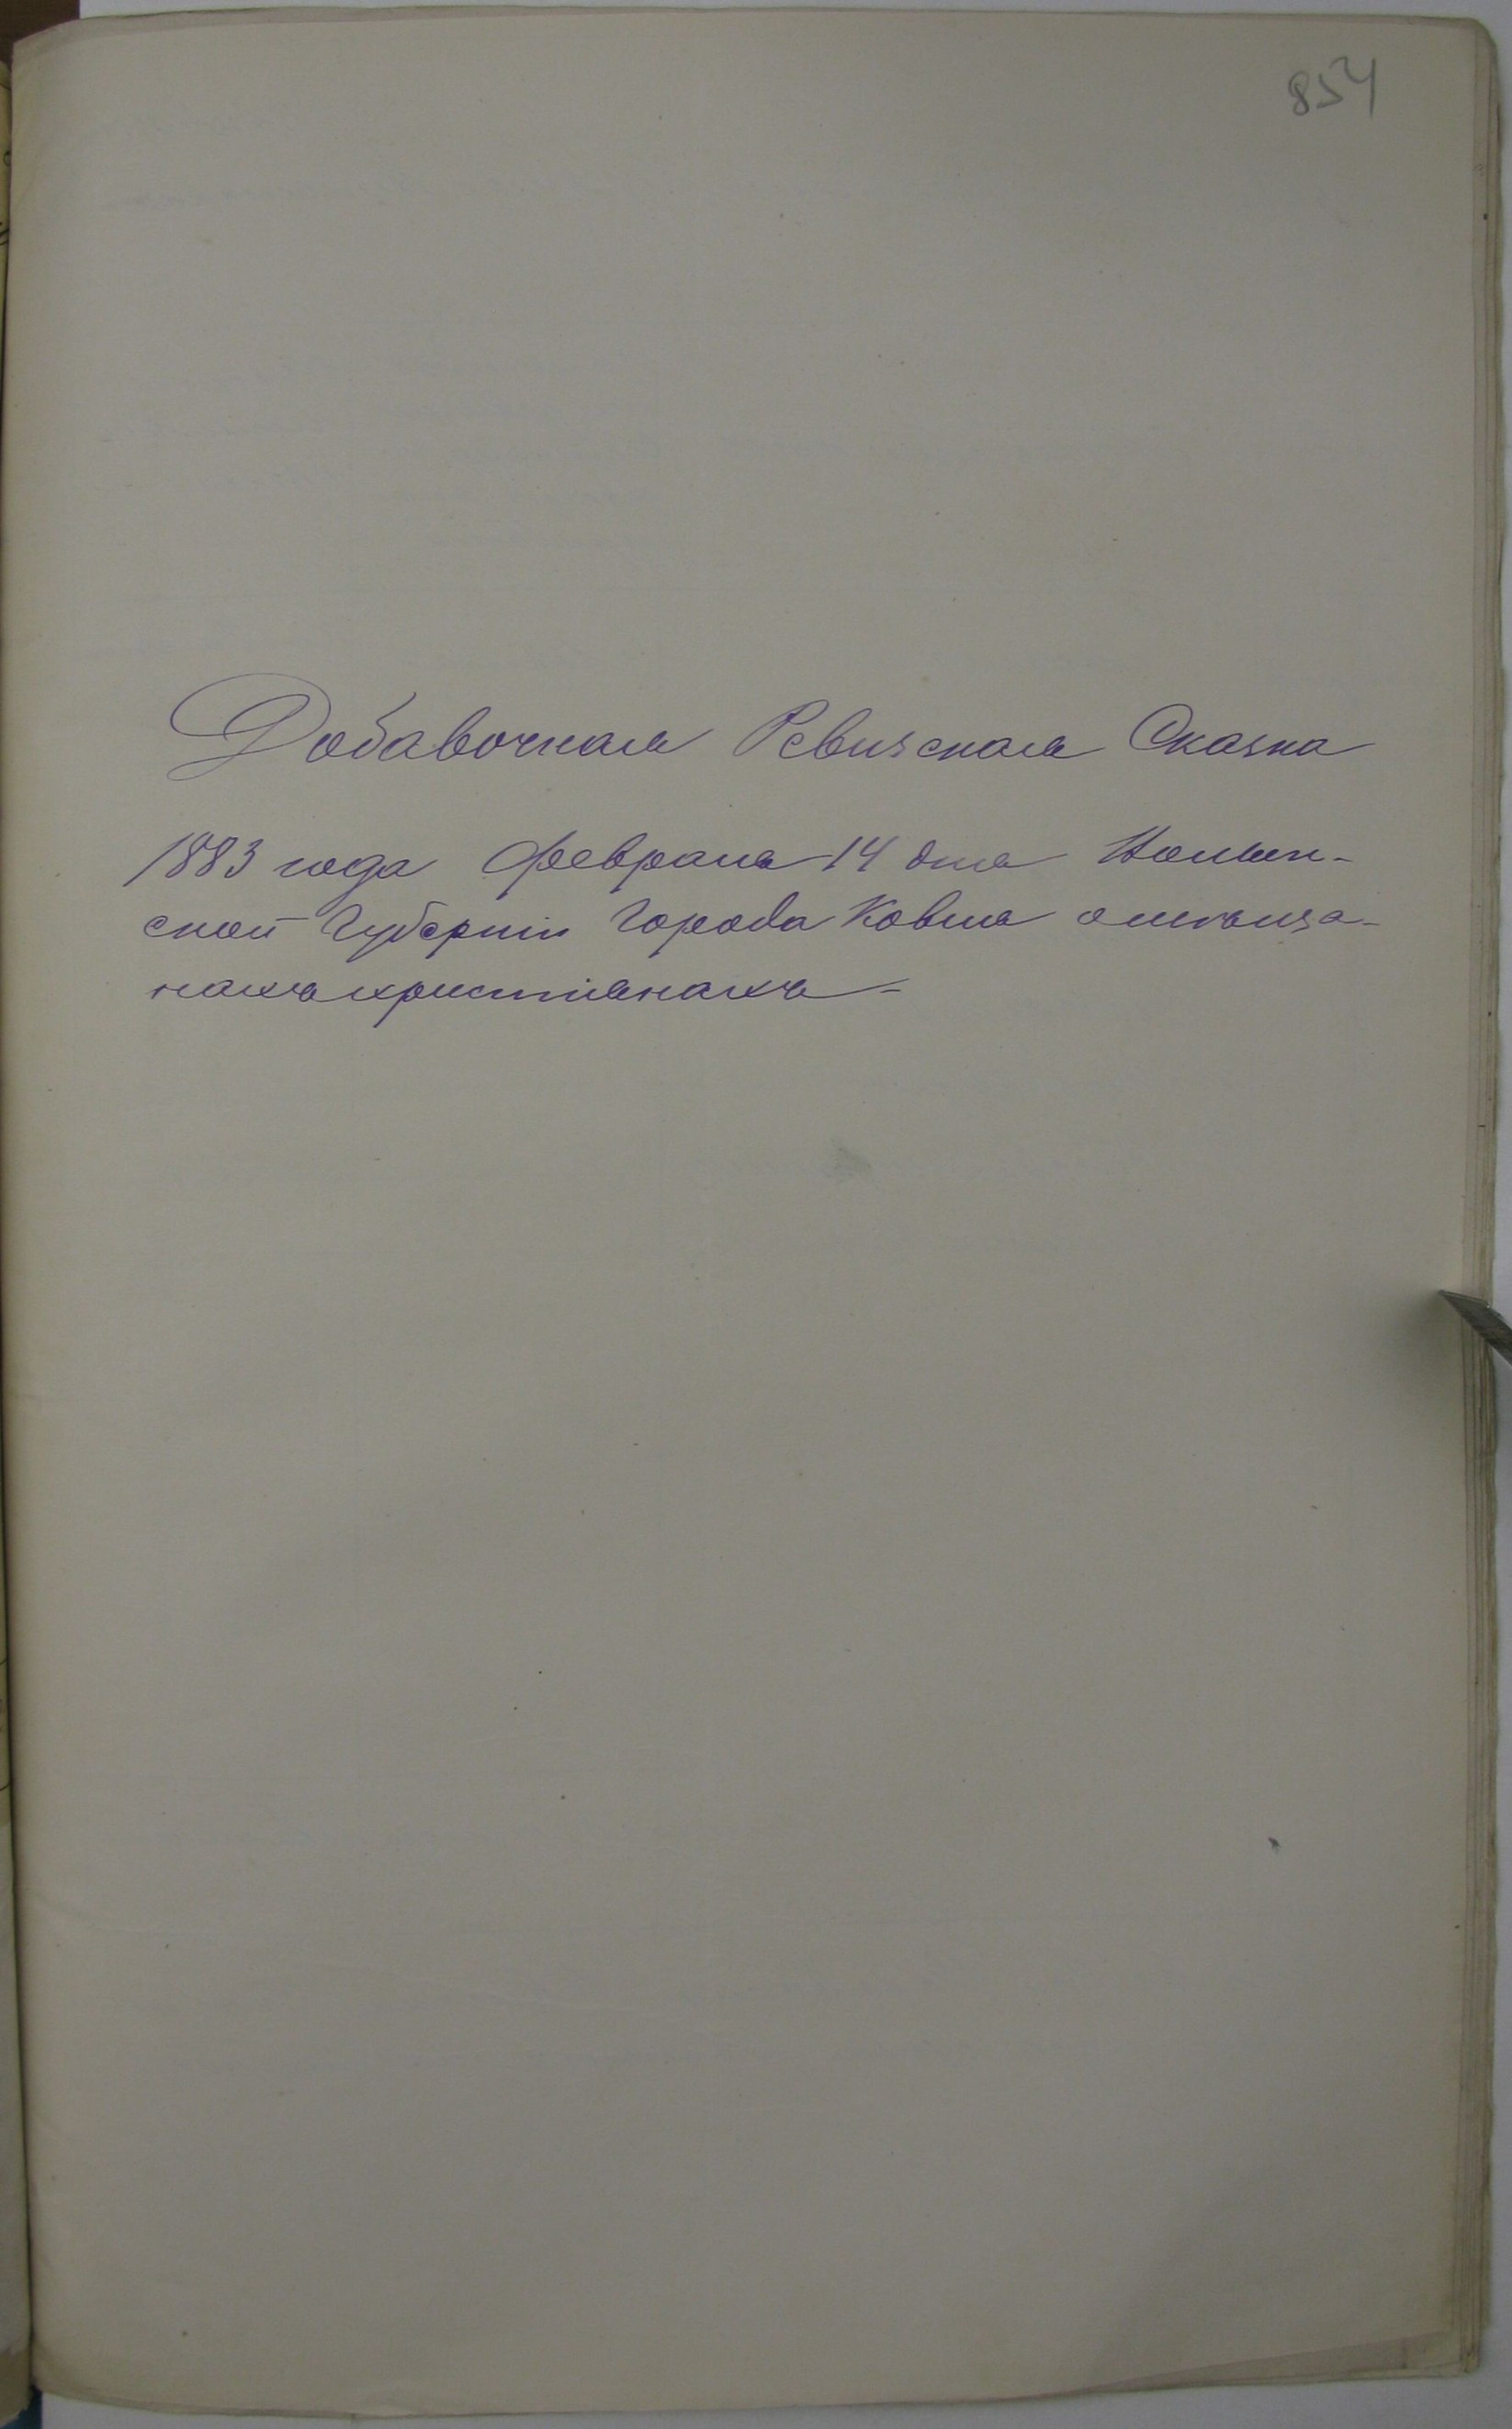 854
Добавочная Ревизская Сказка
1883 года февраля 14 дня Ковен-
ской Губерніи Города Ковна о мѣща-
нахъ христіанахъ